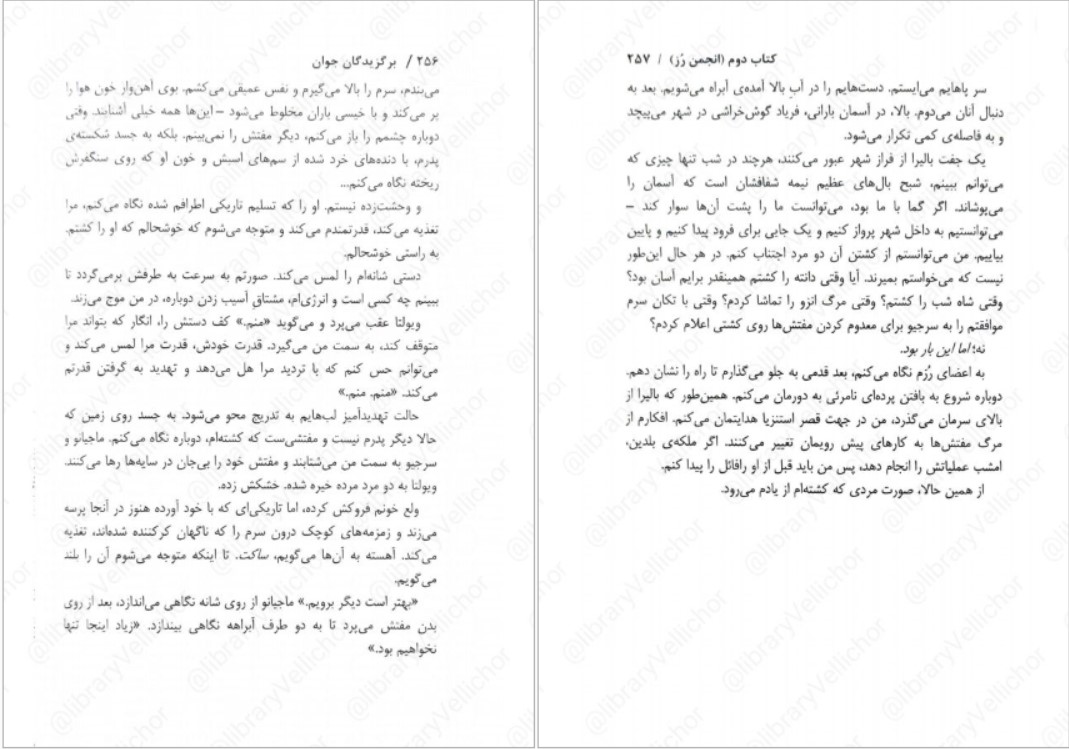 ۲۵۶ / برگزیدگان جوان
می‌بندم، سرم را بالا می‌گیرم و نفس عمیقی می‌کشم. بوی آهن‌وار خون هوا را
پر می‌کند و با خیسی باران مخلوط می‌شود – این‌ها همه خیلی آشنایند. وقتی
دوباره چشمم را باز می‌کنم، دیگر مفتش را نمی‌بینم. بلکه به جسد شکسته‌ی
پدرم، با دنده‌های خرد شده از سم‌های اسبش و خون او که روی سنگفرش
ریخته نگاه می‌کنم...
و وحشت‌زده نیستم. او را که تسلیم تاریکی اطرافم شده نگاه می‌کنم، مرا
تغذیه می‌کند، قدرتمندم می‌کند و متوجه می‌شوم که خوشحالم که او را کشتم.
به راستی خوشحالم.
دستی شانه‌ام را لمس می‌کند. صورتم به سرعت به طرفش برمی‌گردد تا
ببینم چه کسی است و انرژی‌ام، مشتاقِ آسیب زدن دوباره، در من موج می‌زند.
ویولتا عقب می‌پرد و می‌گوید «منم.» کف دستش را، انگار که بتواند مرا
متوقف کند، به سمت من می‌گیرد. قدرت خودش، قدرت مرا لمس می‌کند و
می‌توانم حس کنم که با تردید مرا هل می‌دهد و تهدید به گرفتن قدرتم
می‌کند. «منم. منم.»
حالت تهدیدآمیز لب‌هایم به تدریج محو می‌شود. به جسد روی زمین که
حالا دیگر پدرم نیست و مفتشی‌ست که کشته‌ام، دوباره نگاه می‌کنم. ماجیانو و
سرجیو به سمت من می‌شتابند و مفتش خود را بی‌جان در سایه‌ها رها می‌کنند.
ویولتا به دو مرد مرده خیره شده. خشکش زده.
ولع خونم فروکش کرده، اما تاریکی‌ای که با خود آورده هنوز در آنجا پرسه
می‌زند و زمزمه‌های کوچک درون سرم را که ناگهان کرکننده شده‌اند، تغذیه
می‌کند. آهسته به آن‌ها می‌گویم، ساکت. تا اینکه متوجه می‌شوم آن را بلند
می‌گویم.
«بهتر است دیگر برویم.» ماجیانو از روی شانه نگاهی می‌اندازد، بعد از روی
بدن مفتش می‌پرد تا به دو طرف آبراهه نگاهی بیندازد. «زیاد اینجا تنها
نخواهیم بود.»
کتاب دوم (انجمن رُز) / ۲۵۷
سر پاهایم می‌ایستم. دست‌هایم را در آبِ بالا آمده‌ی آبراه می‌شویم. بعد به
دنبال آنان می‌دوم. بالا، در آسمان بارانی، فریاد گوش‌خراشی در شهر می‌پیچد
و به فاصله‌ی کمی تکرار می‌شود.
یک جفت بالیرا از فراز شهر عبور می‌کنند، هرچند در شب تنها چیزی که
می‌توانم ببینم، شبح بال‌های عظیم نیمه شفافشان است که آسمان را
می‌پوشاند. اگر گما با ما بود، می‌توانست ما را پشت آن‌ها سوار کند –
می‌توانستیم به داخل شهر پرواز کنیم و یک جایی برای فرود پیدا کنیم و پایین
بیاییم. من می‌توانستم از کشتن آن دو مرد اجتناب کنم. در هر حال این‌طور
نیست که می‌خواستم بمیرند. آیا وقتی دانته را کشتم همینقدر برایم آسان بود؟
وقتی شاه شب را کشتم؟ وقتی مرگ انزو را تماشا کردم؟ وقتی با تکان سرم
موافقتم را به سرجیو برای معدوم کردن مفتش‌ها روی کشتی اعلام کردم؟
نه؛ اما این بار بود.
به اعضای رُزم نگاه می‌کنم، بعد قدمی به جلو می‌گذارم تا راه را نشان دهم.
دوباره شروع به بافتن پرده‌ای نامرئی به دورمان می‌کنم. همین‌طور که بالیرا از
بالای سرمان می‌گذرد، من در جهت قصر استنزیا هدایتمان می‌کنم. افکارم از
مرگ مفتش‌ها به کارهای پیش رویمان تغییر می‌کنند. اگر ملکه‌ی بلدین،
امشب عملیاتش را انجام دهد، پس من باید قبل از او رافائل را پیدا کنم.
از همین حالا، صورت مردی که کشته‌ام از یادم می‌رود.
@libraryVellichor